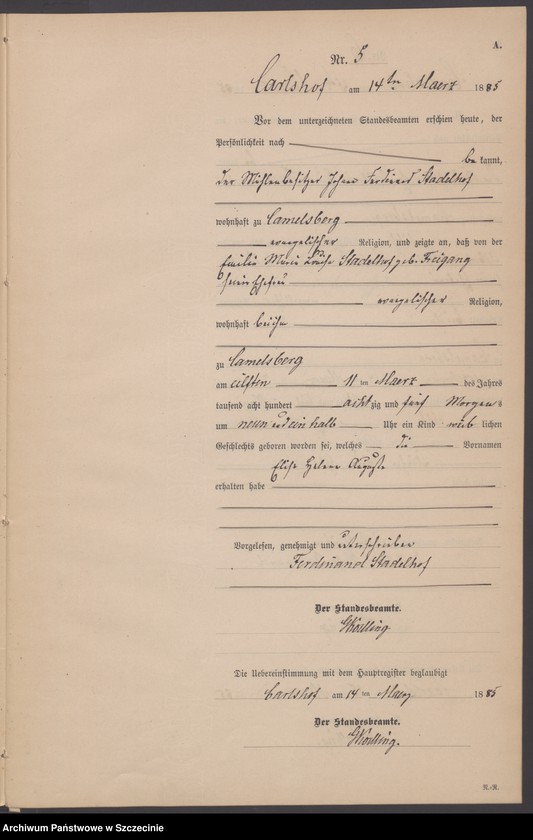 A.
Nr. 5
Carlshof am 14ten Maerz 1885
Vor dem unterzeichneten Standesbeamten erschien heute, der
Persönlichkeit nach
be kannt,
der Mühlenbesitzer Johann Ferdinand Stadelhof
wohnhaft zu Camelsberg
evangelischer Religion, und zeigte an, daß von der
Emilie Marie Louise Stadelhof geb. Freigang
seiner Ehefrau
evangelischer Religion,
wohnhaft bei ihm
zu Camelsberg
am eilften 11 ten Maerz des Jahres
tausend acht hundert achtzig und fünf Morgens
um neun und einhalb Uhr ein Kind weiblichen
Geschlechts geboren worden sei, welches die Vornamen
Elise Helene Auguste
erhalten habe
Vorgelesen, genehmigt und unterschrieben
Ferdinand Stadelhof
Der Standesbeamte.
Die Uebereinstimmung mit dem Hauptregister beglaubigt
Carlshof am 14 ten Maerz 1885
Der Standesbeamte.
N.-R.
Archiwum Państwowe w Szczecinie